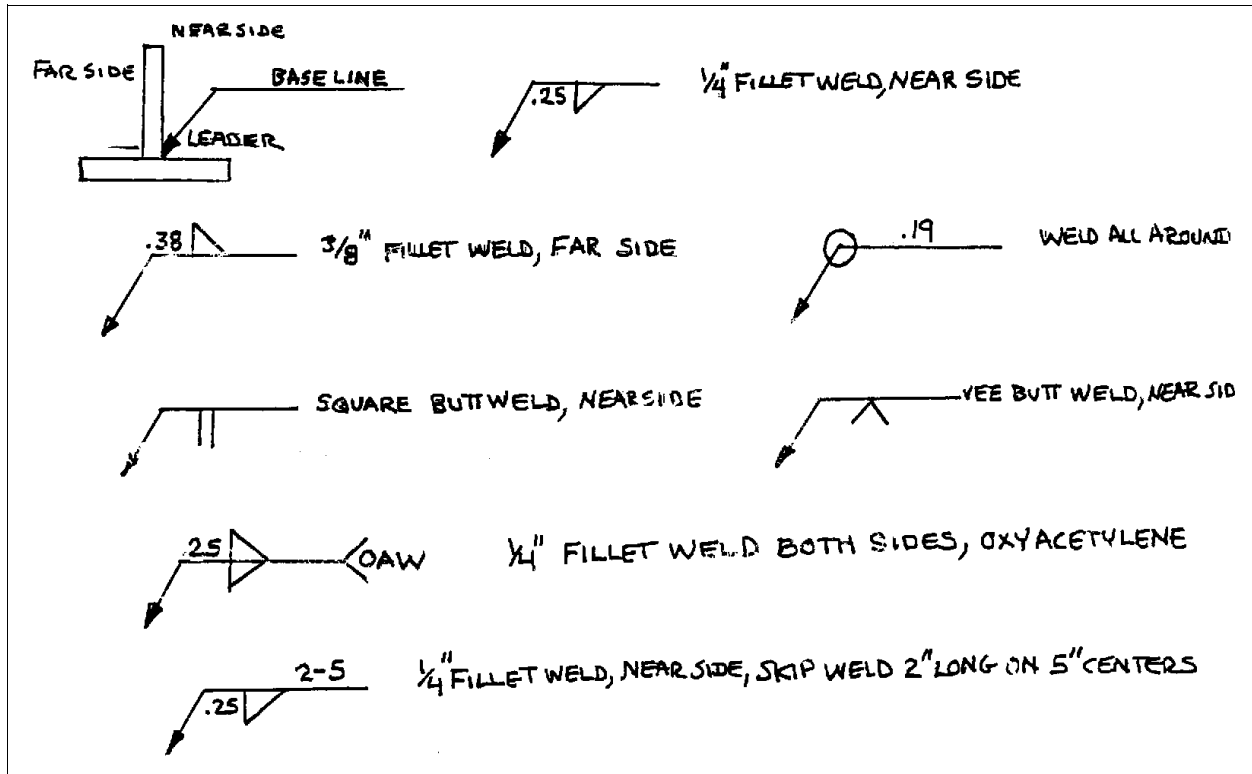 NEAR SIDE
FAR SIDE
BASE LINE
LEADER
.25
1/4" FILLET WELD, NEAR SIDE
.38
3/8" FILLET WELD, FAR SIDE
.19
WELD ALL AROUND
SQUARE BUTT WELD, NEAR SIDE
VEE BUTT WELD, NEAR SID
25
OAW
1/4" FILLET WELD BOTH SIDES, OXYACETYLENE
2-5
.25
1/4" FILLET WELD, NEAR SIDE, SKIP WELD 2" LONG ON 5" CENTERS